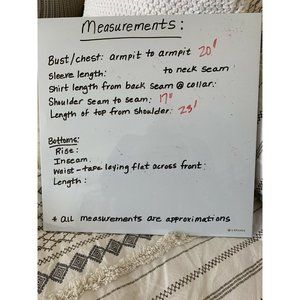 Measurements:
Bust/chest: armpit to armpit 20"
Sleeve length: to neck seam
Shirt length from back seam @ collar:
Shoulder seam to seam: 17"
Length of top from shoulder: 23"
Bottoms:
Rise:
Inseam:
Waist - tape laying flat across front:
Length:
* all measurements are approximations